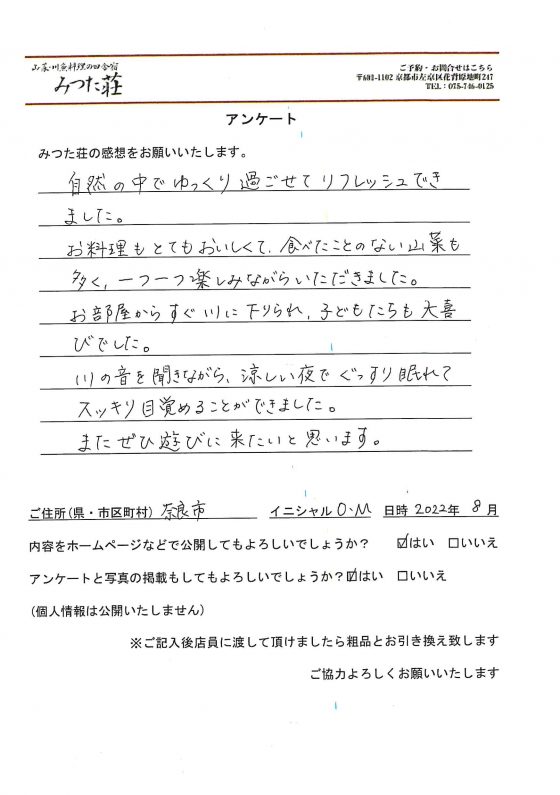 山菜・川魚料理の田舎宿
みつた荘
ご予約・お問合せはこちら
〒601-1102 京都市左京区花脊原地町247
TEL：075-746-0125
アンケート
みつた荘の感想をお願いいたします。
自然の中でゆっくり過ごせてリフレッシュでき
ました。
お料理もとてもおいしくて、食べたことのない山菜も
多く、一つ一つ楽しみながらいただきました。
お部屋からすぐ川に下りられ、子どもたちも大喜
びでした。
川の音を聞きながら、涼しい夜でぐっすり眠れて
スッキリ目覚めることができました。
またぜひ遊びに来たいと思います。
ご住所(県・市区町村) 奈良市 イニシャル O・M 日時 2022年 8月
内容をホームページなどで公開してもよろしいでしょうか？ ☑はい □いいえ
アンケートと写真の掲載もしてもよろしいでしょうか？☑はい □いいえ
(個人情報は公開いたしません)
※ご記入後店員に渡して頂けましたら粗品とお引き換え致します
ご協力よろしくお願いいたします